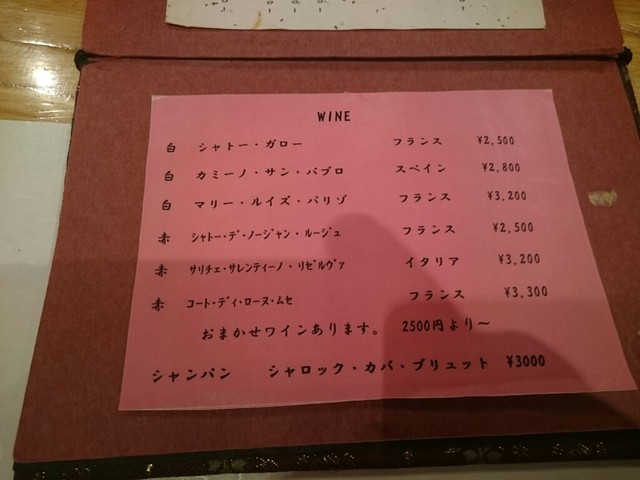 WINE
白 シャトー・ガロー フランス ¥2,500
白 カミーノ・サン・パブロ スペイン ¥2,800
白 マリー・ルイズ・パリゾ フランス ¥3,200
赤 ｼｬﾄｰ･ﾃﾞ･ﾉｰｼﾞｬﾝ･ﾙｰｼﾞｭ フランス ¥2,500
赤 ｻﾘﾁｪ･ｻﾚﾝﾃｨｰﾉ･ﾘｾﾞﾙｳﾞｧ イタリア ¥3,200
赤 ｺｰﾄ･ﾃﾞｨ･ﾛｰﾇ･ﾑｾ フランス ¥3,300
おまかせワインあります。 2500円より～
シャンパン シャロック・カバ・ブリュット ¥3000